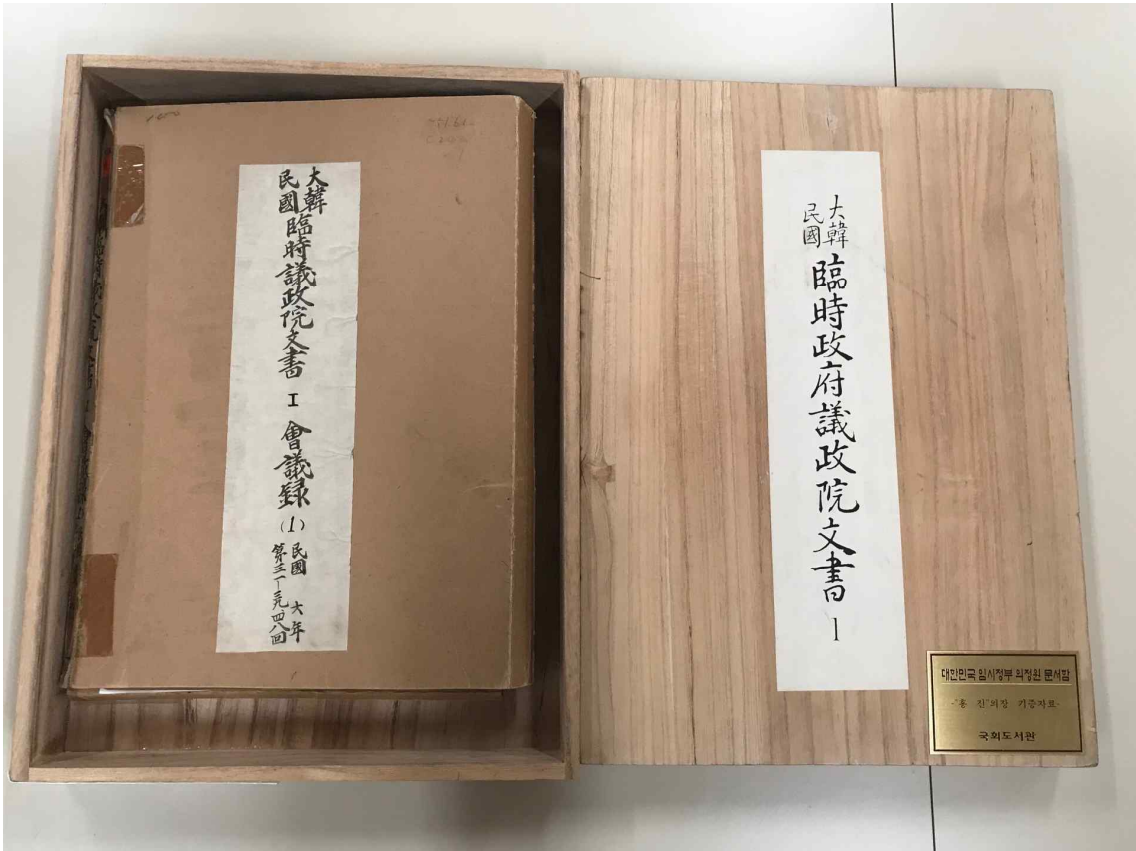 大韓民國臨時議政院文書 I 會議録 (1) 民國 六年
大韓民國臨時政府議政院文書 1
대한민국 임시정부 의정원 문서함
-"홍 진"의장 기증자료-
국회도서관